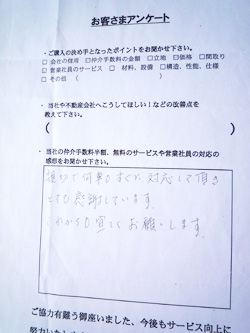 お客さまアンケート
・ご購入の決め手となったポイントをお聞かせ下さい。
□ 会社の信用 □仲介手数料の金額 □立地 □価格 □間取り
□ 営業社員のサービス □ 材料、設備 □構造、性能、仕様
□ その他（ ）
・当社や不動産会社へこうしてほしい！などの改善点を
教えて下さい。
・当社の仲介手数料半額、無料のサービスや営業社員の対応の
感想をお聞かせ下さい。
親切で何事もすぐに対応して頂き
とても感謝しています。
これからも宜しくお願いします。
ご協力有難う御座いました、今後もサービス向上に